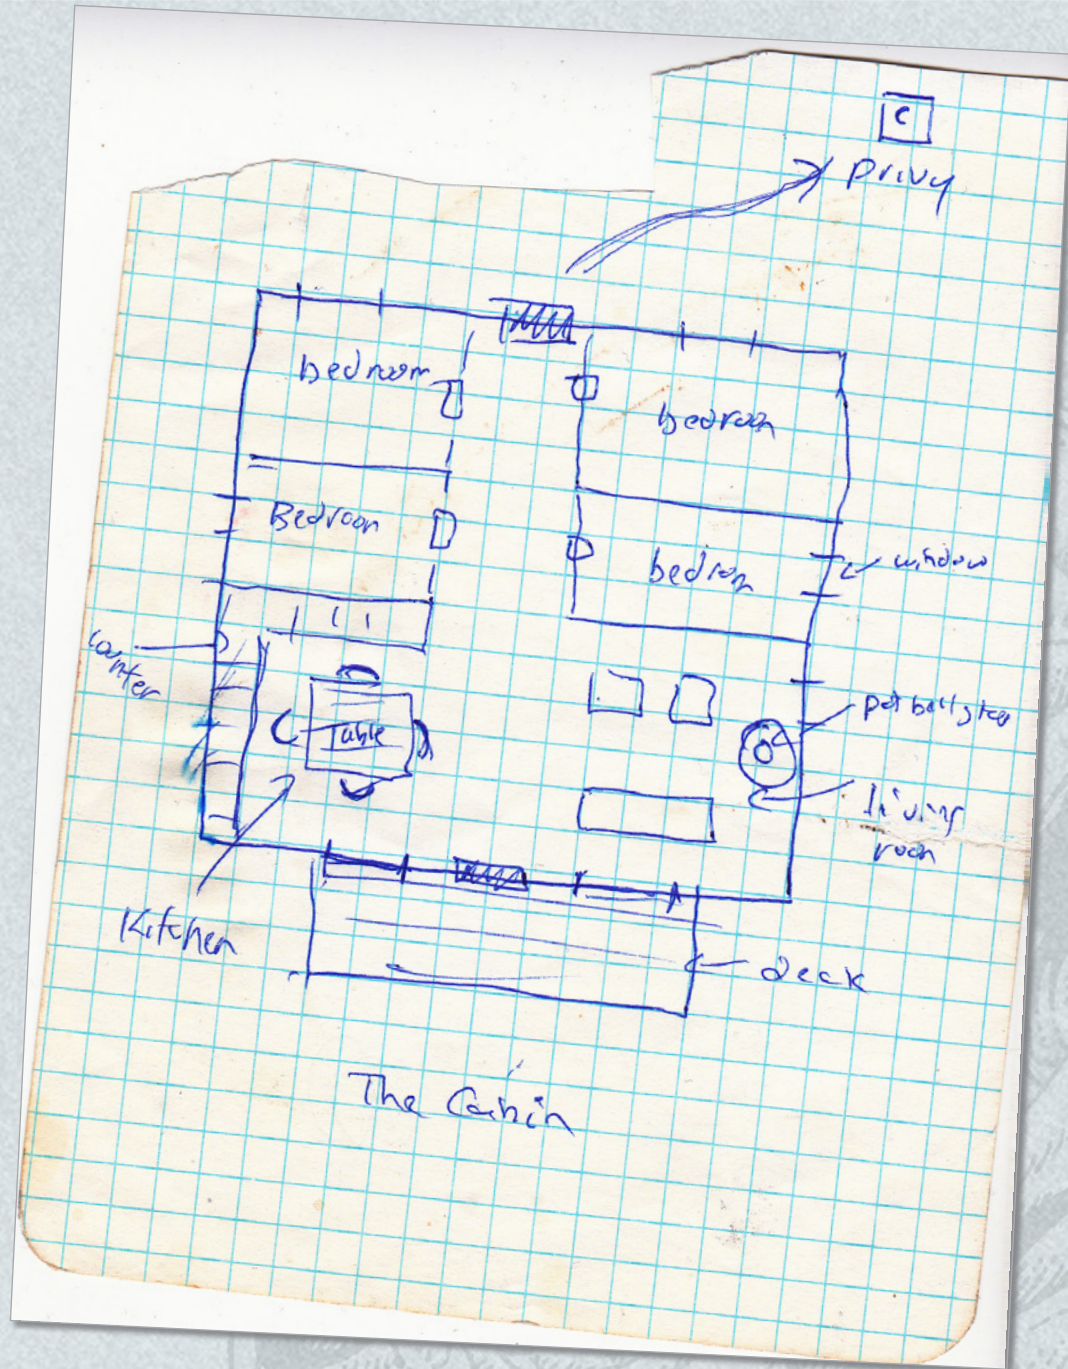 C
Privy
bedroom
bedroom
Bedroom
bedrom
window
counter
Table
pot belly
living
room
Kitchen
deck
The Cabin